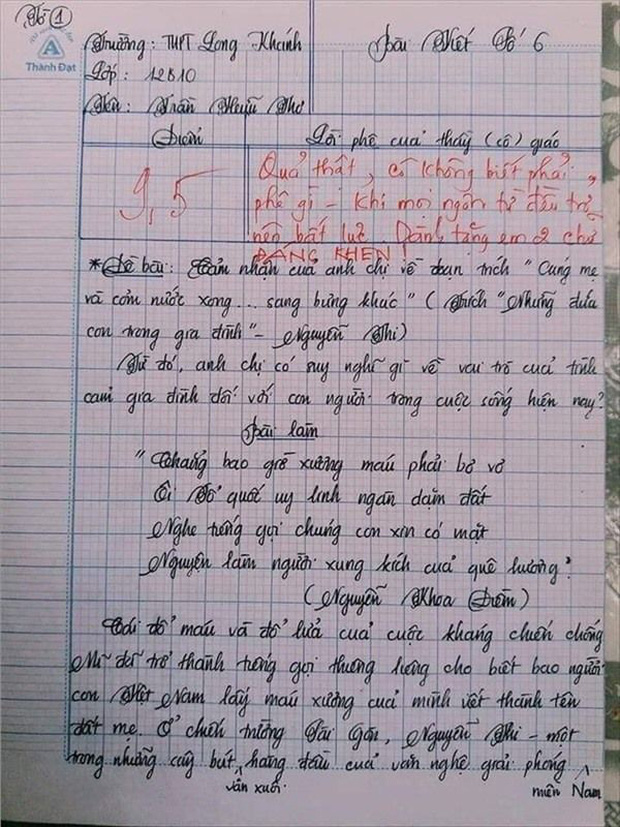 Tờ 1
Thành Đạt
Trường: THPT Long Khánh
Bài Viết Số 6
Lớp: 12B10
Tên: Trần Hữu Thơ
Điểm
Lời phê của thầy (cô) giáo
9,5
Quả thật, cô không biết phải
phê gì - khi mọi ngôn từ đều trở
nên bất lực. Dành tặng em 2 chữ
ĐÁNG KHEN!
* Đề bài: Cảm nhận của anh chị về đoạn trích "Cúng mẹ
và cơm nước xong... sang bưng khác" (Trích "Những đứa
con trong gia đình" - Nguyễn Thi)
Từ đó, anh chị có suy nghĩ gì về vai trò của tình
cảm gia đình đối với con người trong cuộc sống hiện nay?
Bài làm
"Chẳng bao giờ xương máu phải bơ vơ
Ôi Tổ quốc uy linh ngàn dặm đất
Nghe tiếng gọi chung con xin có mặt
Nguyện làm người xung kích của quê hương"
(Nguyễn Khoa Điềm)
Cái đổ máu và đổ lửa của cuộc kháng chiến chống
Mĩ đã trở thành tiếng gọi thiêng liêng cho biết bao người
con Việt Nam lấy máu xương của mình viết thành tên
đất mẹ. Ở chiến trường Sài Gòn, Nguyễn Thi - một
trong những cây bút văn xuôi hàng đầu của văn nghệ giải phóng miền Nam